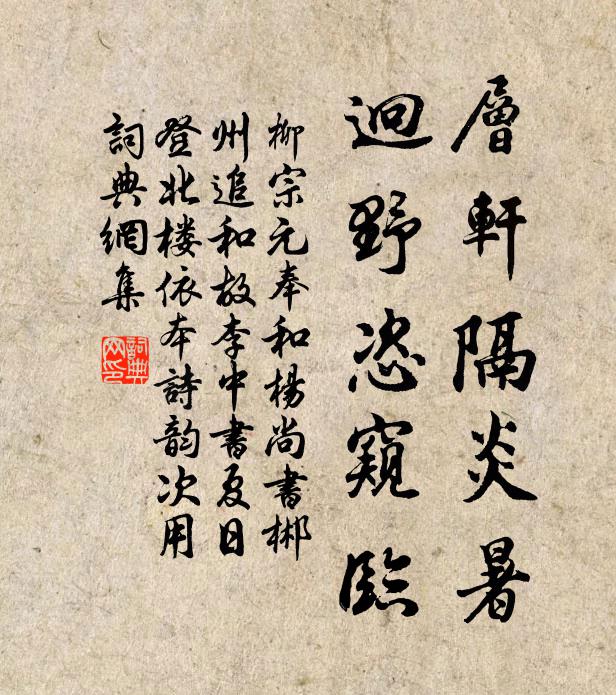 層軒隔炎暑
迥野恣窺臨
柳宗元奉和楊尚書郴
州追和故李中書夏日
登北楼依本詩韵次用
詞典網集
詞典
网印